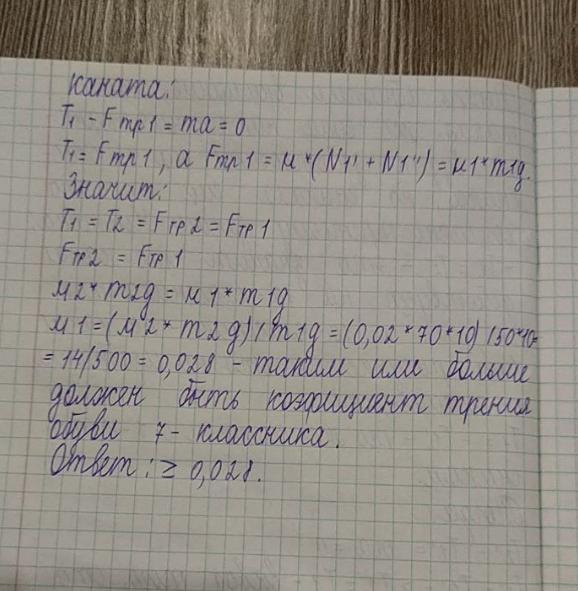 каната:
T1 - Fтр1 = ma = 0
T1 = Fтр1, а Fтр1 = м*(N1' + N1'') = м1*m1g.
Значит:
T1 = T2 = Fтр2 = Fтр1
Fтр2 = Fтр1
м2*m2g = м1*m1g
м1=(м2*m2g)/m1g =(0,02*70*10)/50*10=
= 14/500 = 0,028 - таким или больше
должен быть коэфициент трения
обуви 7-классника.
Ответ: ≥ 0,028.